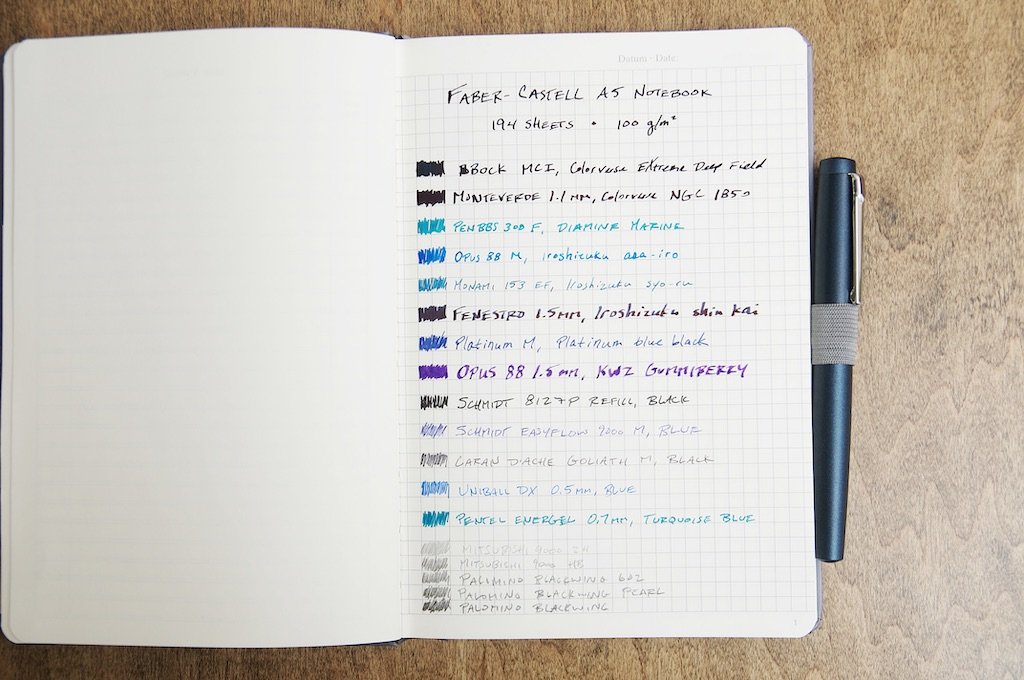 Datum · Date:
FABER-CASTELL A5 NOTEBOOK
194 SHEETS • 100 g/m²
BBOCK MCI, Colorverse EXtreme Deep Field
MONTEVERDE 1.1 MM, Colorverse NGC 1850
PENBBS 300 F, DIAMINE MARINE
OPUS 88 M, Iroshizuku asa-iro
MONAMI 153 EF, Iroshizuku syo-ru
FENESTRO 1.5MM, Iroshizuku shin kai
Platinum M, Platinum blue black
OPUS 88 1.5mm, KWZ GUMMIBERRY
SCHMIDT 8127P REFILL, BLACK
SCHMIDT EASYFLOW 9000 M, BLUE
CARAN D'ACHE GOLIATH M, BLACK
UNIBALL DX 0.5MM, BLUE
PENTEL ENERGEL 0.7MM, TURQUOISE BLUE
MITSUBISHI 9000 2H
MITSUBISHI 9000 HB
PALOMINO BLACKWING 602
PALOMINO BLACKWING PEARL
PALOMINO BLACKWING
1